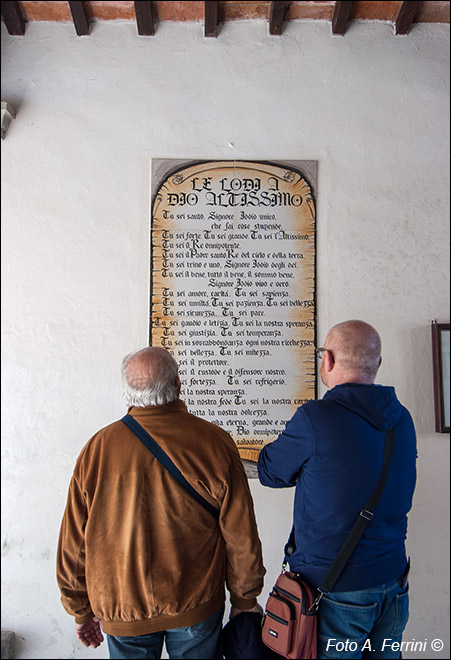 LE LODI A
DIO ALTISSIMO
Tu sei santo, Signore Iddio unico,
che fai cose stupende.
Tu sei forte. Tu sei grande. Tu sei l'Altissimo.
Tu sei il Re onnipotente.
Tu sei il Padre santo Re del cielo e della terra.
Tu sei trino e uno, Signore Iddio degli dei.
Tu sei il bene, tutto il bene, il sommo bene,
Signore Iddio vivo e vero.
Tu sei amore, carità. Tu sei sapienza.
Tu sei umiltà. Tu sei pazienza. Tu sei bellezza.
Tu sei sicurezza. Tu sei pace.
Tu sei gaudio e letizia. Tu sei la nostra speranza.
Tu sei giustizia. Tu sei temperanza.
Tu sei in sovrabbondanza ogni nostra ricchezza.
Tu sei bellezza. Tu sei mitezza.
sei il protettore.
sei il custode e il difensore nostro.
sei fortezza. Tu sei refrigerio.
sei la nostra speranza.
sei la nostra fede Tu sei la nostra carità
tutta la nostra dolcezza.
vita eterna, grande e
Dio onnipotente
salvatore.
Foto A. Ferrini ©